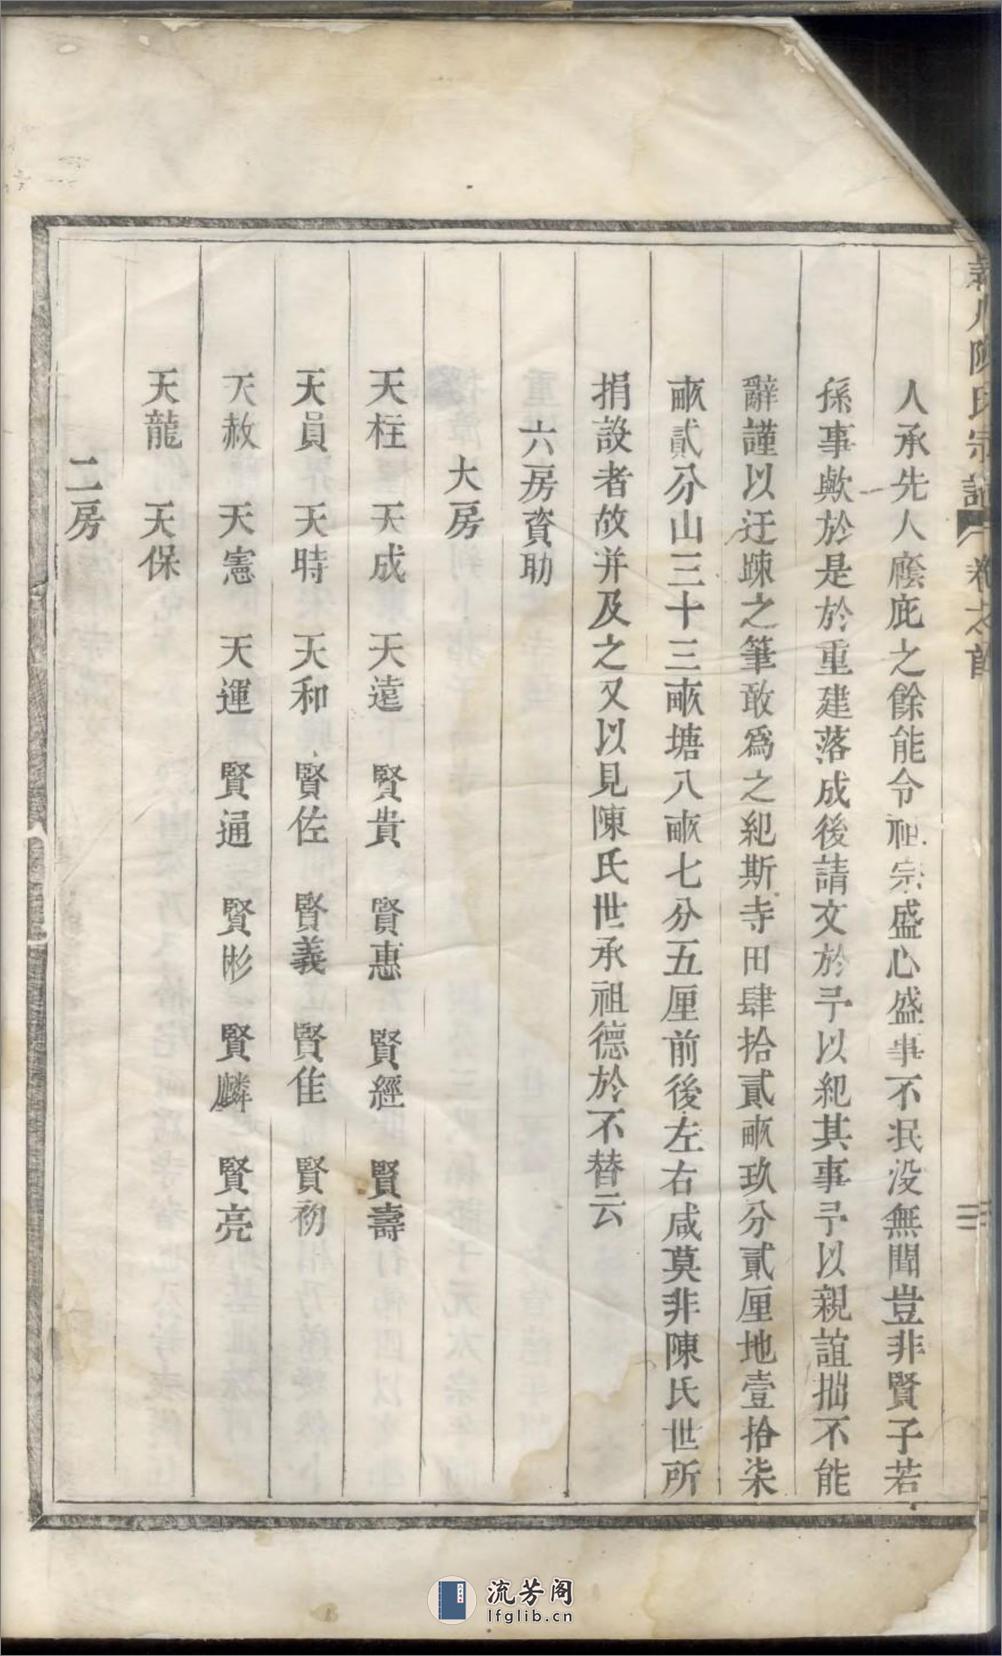 陳氏宗譜 卷之首
三
人承先人廕庇之餘能令祖宗盛心盛事不泯没無聞豈非賢子若
孫事歟於是於重建落成後請文於予以紀其事予以親誼拙不能
辭謹以迂疎之筆敢爲之紀斯寺田肆拾貳畝玖分貳厘地壹拾柒
畝貳分山三十三畝塘八畝七分五厘前後左右咸莫非陳氏世所
捐設者故并及之又以見陳氏世承祖德於不替云
六房資助
大房
天柱 天成 天遠 賢貴 賢惠 賢經 賢壽
天員 天時 天和 賢佐 賢義 賢佳 賢初
天赦 天憲 天運 賢通 賢彬 賢麟 賢亮
天龍 天保
二房
流芳阁
lfglib.cn